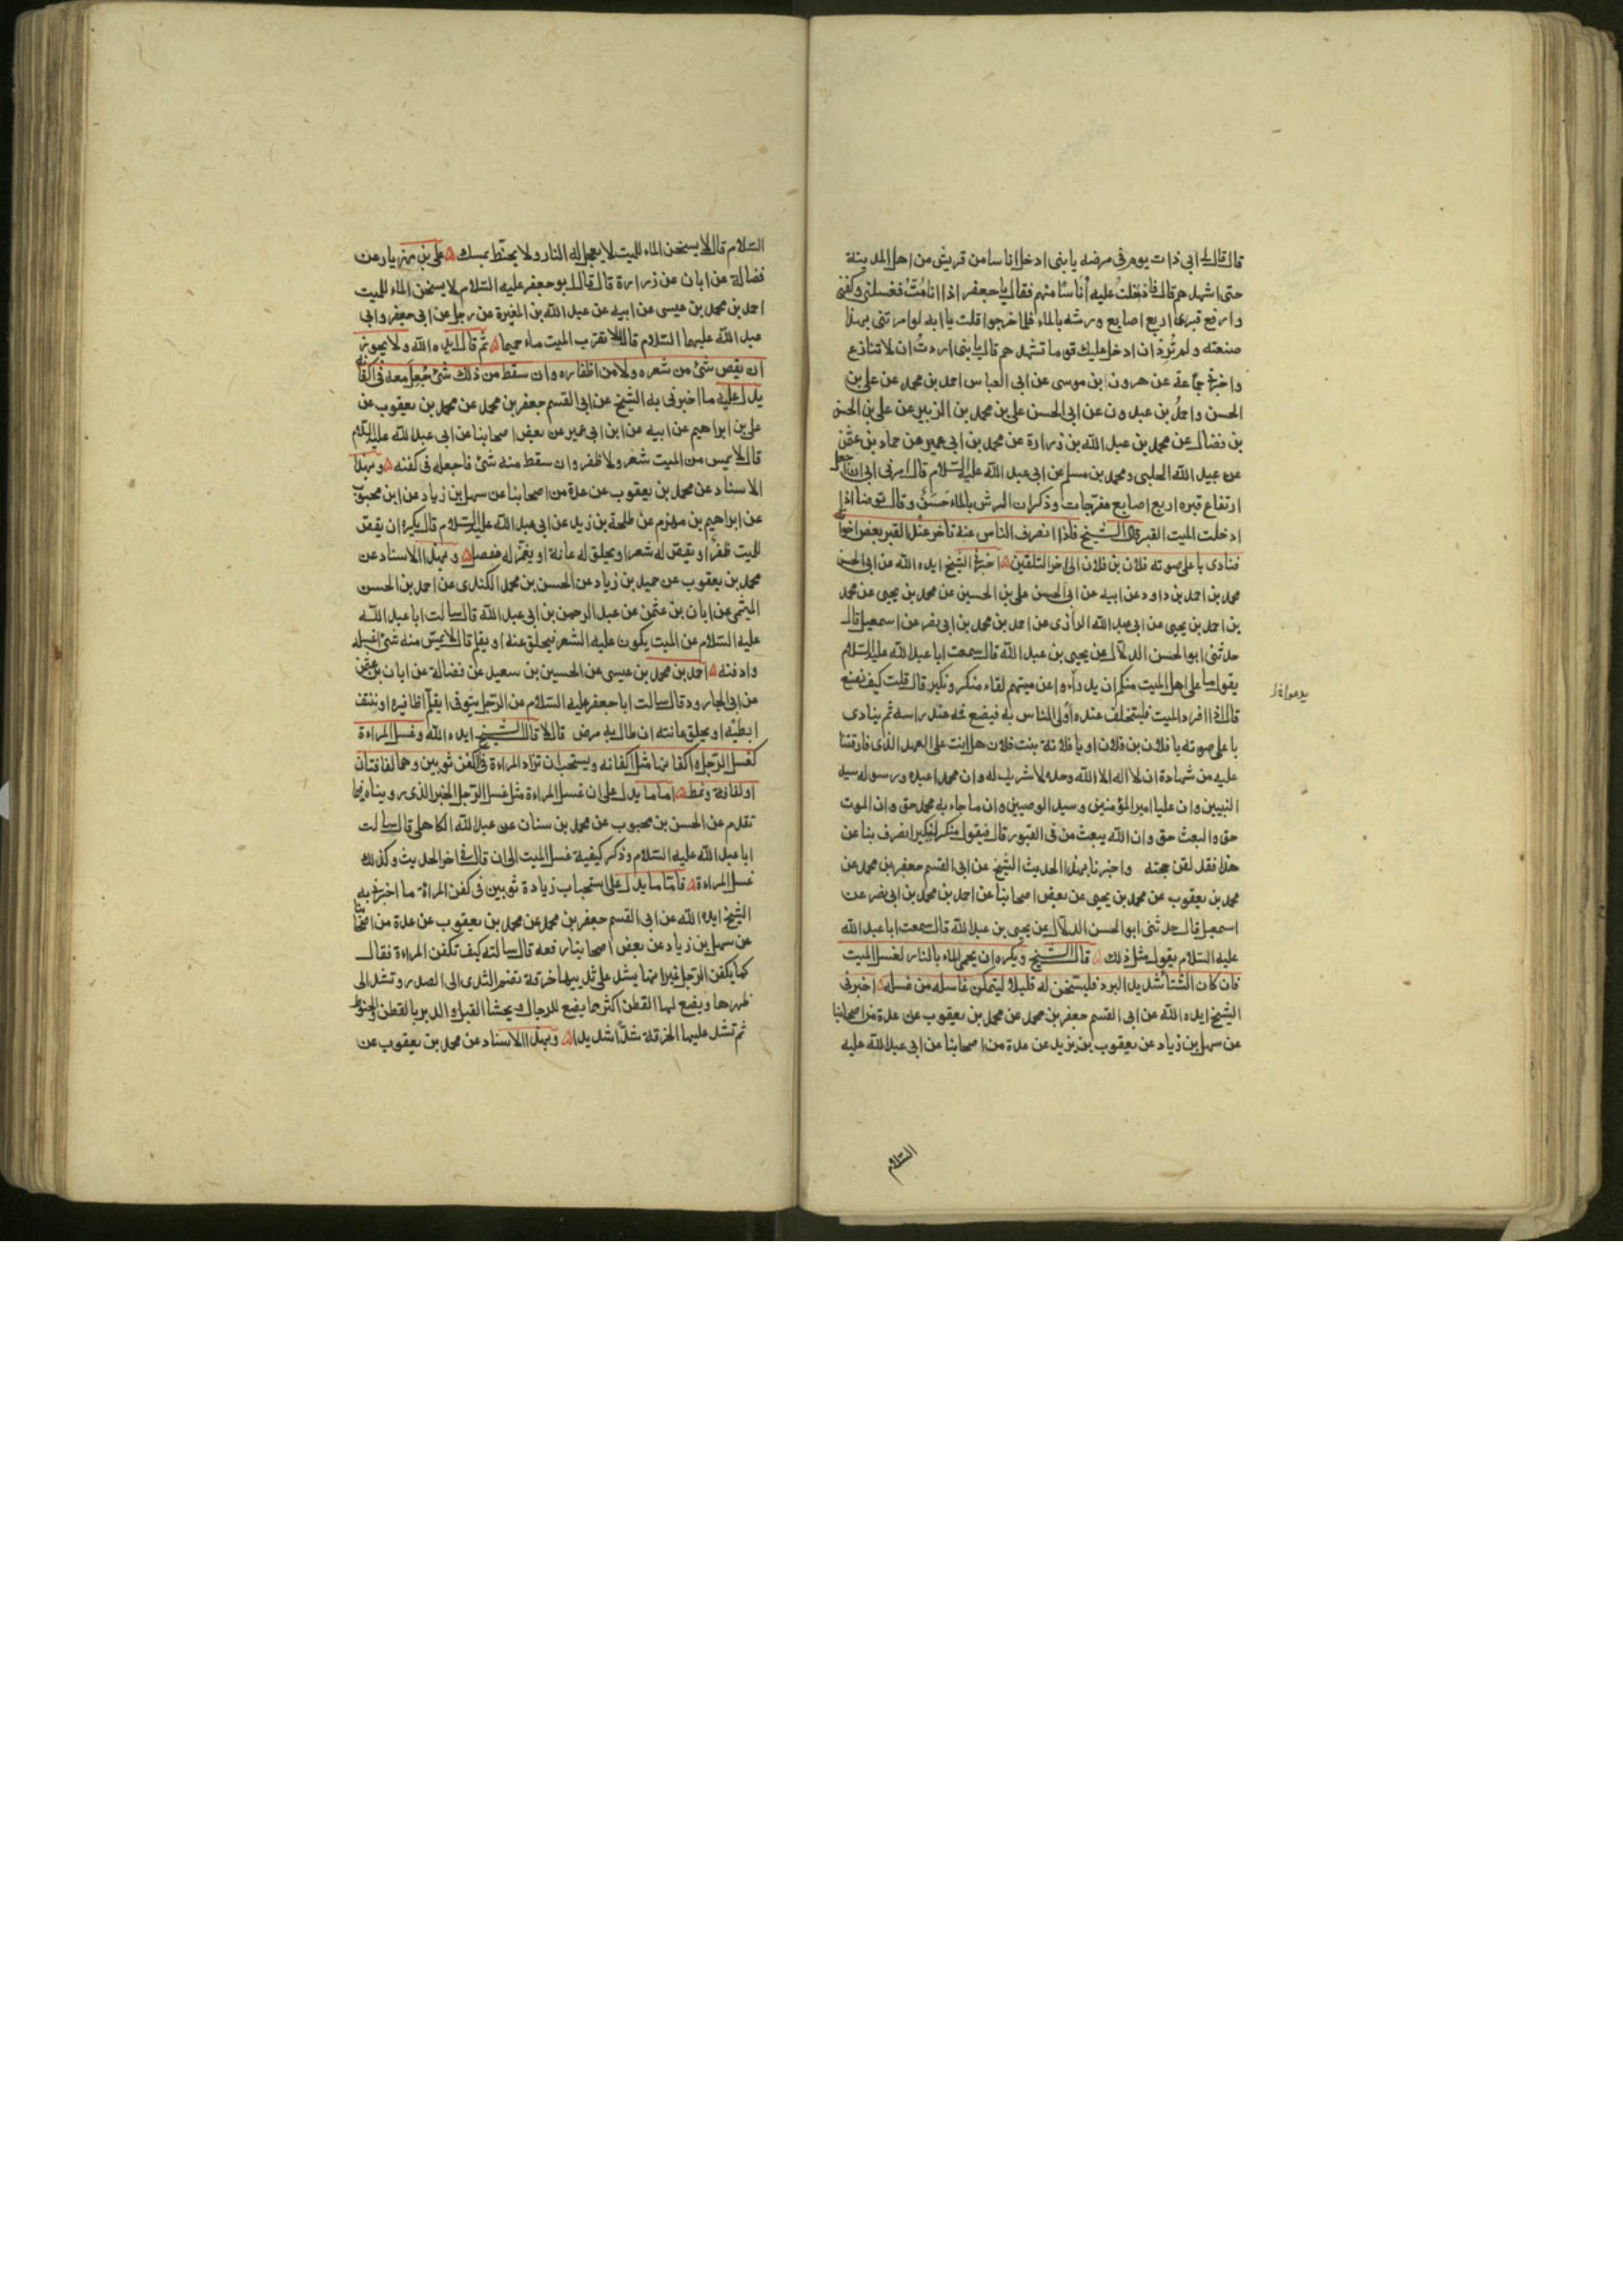 قال قال لي ابي ذات يوم في مرضه يا بني ادخل اناسا من قريش من اهل المدينة
حتى اشهدهم قال فادخلت عليه أناسًا منهم فقال يا جعفر اذا انا مُتُّ فغسلني وكفني
وارفع قبري اربع اصابع ورشه بالماء فلما خرجوا قلت يا ابه لو امرتني بهذا
صنعته ولم تُرِدْ ان ادخل عليك قوما تشهدهم قال يا بني اردتُ ان لا تنازع
واخبرني جماعة عن هرون بن موسى عن ابي العباس احمد بن محمد عن علي بن
الحسن واحمدُ بن عبدون عن ابي الحسن علي بن محمد بن الزبير عن علي بن الحسن
بن فضال عن محمد بن عبد الله بن زرارة عن محمد بن ابي عمير عن حماد بن عثمن
عن عبيد الله الحلبي ومحمد بن مسلم عن ابي عبد الله عليه السلام قال امرني ابي ان اجعل
ارتفاع قبره اربع اصابع مفرّجات وذكر ان الرش بالماء حَسَنٌ وقال توضا اذا
ادخلت الميت القبر قال الشيخ فاذا انصرف الناس عنه تأخر عند القبر بعض اخوانه
فنادى باعلى صوته فلان بن فلان الى اخر التلقين اخبرني الشيخ ايده الله عن ابي الحسن
محمد بن احمد بن داود عن ابيه عن ابي الحسن علي بن الحسين عن محمد بن يحيى عن محمد
بن احمد بن يحيى عن ابي عبد الله الرازي عن احمد بن محمد بن ابي نصر عن اسمعيل قال
حدثني ابو الحسن الدلاّل عن يحيى بن عبد الله قال سمعت ابا عبد الله عليه السلام
يقول ما على اهل الميت منكم ان يدرأوا عن ميتهم لقاء منكر ونكير قال قلت كيف نصنع
قال اذا افرد الميت فليتخلف عنده أولى الناس به فيضع فمه عند راسه ثم ينادى
باعلى صوته يا فلان بن فلان او يا فلانة بنت فلان هل انت على العهد الذي فارقتنا
عليه من شهادة ان لا اله الا الله وحده لا شريك له وان محمدا عبده ورسوله سيد
النبيين وان عليا امير المؤمنين وسيد الوصيين وان ما جاء به محمد حق وان الموت
حق والبعث حق وان الله يبعث من في القبور قال فيقول منكر لنكير انصرف بنا عن
هذا فقد لقن حجته واخبرنا بهذا الحديث الشيخ عن ابي القسم جعفر بن محمد عن
محمد بن يعقوب عن محمد بن يحيى عن بعض اصحابنا عن احمد بن محمد بن ابي نصر عن
اسمعيل قال حدثني ابو الحسن الدلاّل عن يحيى بن عبد الله قال سمعت ابا عبد الله
عليه السلام يقول مثل ذلك قال الشيخ ويكره ان يحمى الماء بالنار لغسل الميت
فان كان الشتاء شديد البرد فليسخن له قليلا ليتمكن غاسله من غسله اخبرني
الشيخ ايده الله عن ابي القسم جعفر بن محمد عن محمد بن يعقوب عن عدة من اصحابنا
عن سهل بن زياد عن يعقوب بن يزيد عن عدة من اصحابنا عن ابي عبد الله عليه
السلام
السلام قال لا يسخن الماء للميت لا يعجل له النار ولا يحنّط بمسك علي بن مهزيار عن
فضالة عن ابان عن زرارة قال قال ابو جعفر عليه السلام لا يسخن الماء للميت
احمد بن محمد بن عيسى عن ابيه عن عبد الله بن المغيرة عن رجل عن ابي جعفر وابي
عبد الله عليهما السلام قال لا تقرب الميت ماء حميما ثم قال ايده الله ولا يجوز
ان يقص شئ من شعره ولا من اظفاره وان سقط من ذلك شئ جُعِل معه في اكفانه
يدل عليه ما اخبرني به الشيخ عن ابي القسم جعفر بن محمد عن محمد بن يعقوب عن
علي بن ابراهيم عن ابيه عن ابن ابي عمير عن بعض اصحابنا عن ابي عبد الله عليه السلام
قال لا يمس من الميت شعر ولا ظفر وان سقط منه شئ فاجعله في كفنه وبهذا
الاسناد عن محمد بن يعقوب عن عدة من اصحابنا عن سهل بن زياد عن ابن محبوب
عن ابراهيم بن مهزم عن طلحة بن زيد عن ابي عبد الله عليه السلام قال يكره ان يقص
للميت ظفرٌ او يقص له شعر او يحلق له عانة او يغمز له مفصل وبهذا الاسناد عن
محمد بن يعقوب عن حميد بن زياد عن الحسن بن محمد الكندي عن احمد بن الحسن
الميثمي عن ابان بن عثمن عن عبد الرحمن بن ابي عبد الله قال سالت ابا عبد الله
عليه السلام عن الميت يكون عليه الشعر فيحلق عنه او يقلم قال لا يمس منه شئ اغسله
وادفنه احمد بن محمد بن عيسى عن الحسين بن سعيد عن فضالة عن ابان بن عثمن
عن ابي الجارود قال سالت ابا جعفر عليه السلام عن الرجل يتوفى ايقلّم اظافيره او ننتف
ابطيه او يحلق عانته ان طال به مرض قال لا قال الشيخ ايده الله وغسل المراءة
كغسل الرجل واكفانها مثل اكفانه ويستحب ان تزاد المراءة في الكفن ثوبين وهما لفافتان
او لفافة ونمط اما ما يدل على ان غسل المراءة مثل غسل الرجل الخبر الذي رويناه فيما
تقدم عن الحسن بن محبوب عن محمد بن سنان عن عبد الله الكاهلي قال سالت
ابا عبد الله عليه السلام وذكر كيفية غسل الميت الى ان قال في اخر الحديث وكذلك
غسل المراءة فامّا ما يدل على استحباب زيادة ثوبين في كفن المراة ما اخبرني به
الشيخ ايده الله عن ابي القسم جعفر بن محمد عن محمد بن يعقوب عن عدة من اصحابنا
عن سهل بن زياد عن بعض اصحابنا رفعه قال سالته كيف تكفن المراءة فقال
كما يكفن الرجل غير انها يشد على ثدييها خرقة تضم الثدي الى الصدر وتشد الى
ظهرها ويضع لها القطن اكثر مما يضع للرجال ويحشا القبل والدبر بالقطن والحنوط
ثم تشد عليها الخرقة شدًّا شديدا وبهذا الاسناد عن محمد بن يعقوب عن